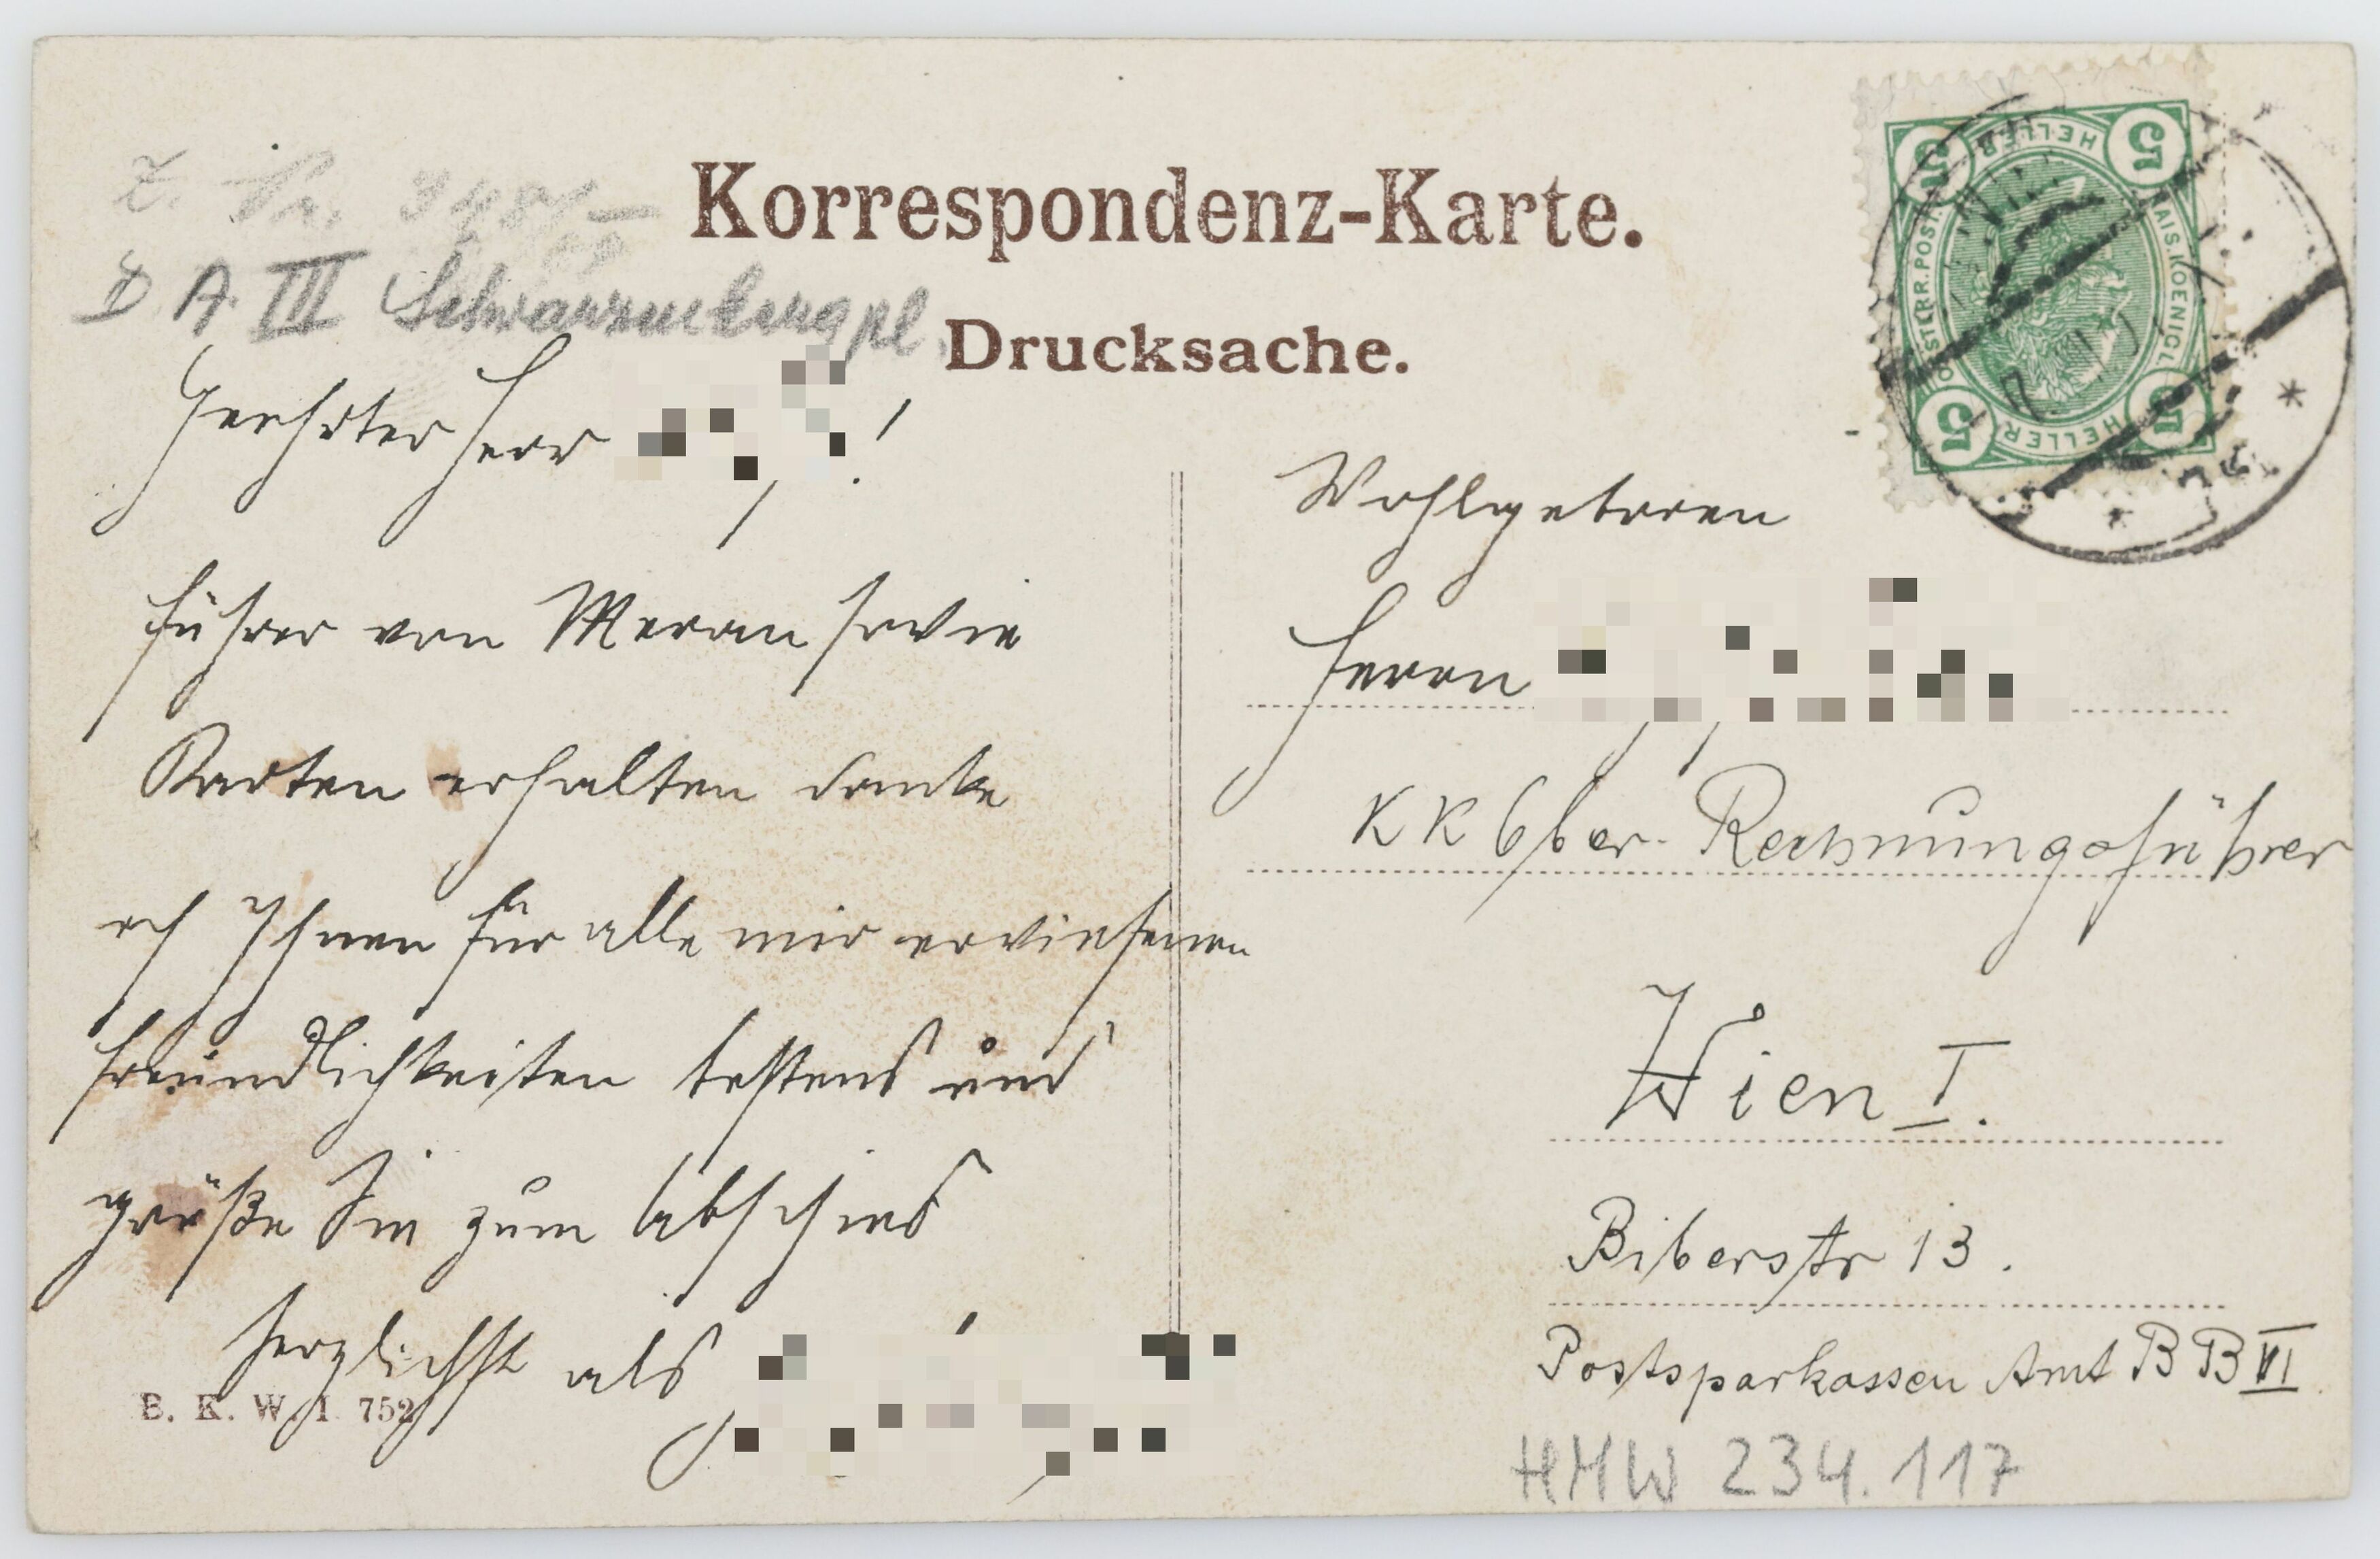 Korrespondenz-Karte.
Drucksache.
D A. III Schwarzenbergpl.
Geehrter Herr !
Führer von Meran sowie
Karten erhalten danke
ich Ihnen für alle mir erwiesenen
Freundlichkeiten bestens und
grüße Sie zum Abschied
herzlichst als
B. K. W. I. 752
Wohlgeboren
Herrn
K K Ober- Rechnungsführer
Wien I.
Biberstr 13.
Postsparkassen Amt B B VI
HMW 234.117
5 HELLER 5
5 HELLER 5
KAIS. KOENIGL.
OESTERR. POST